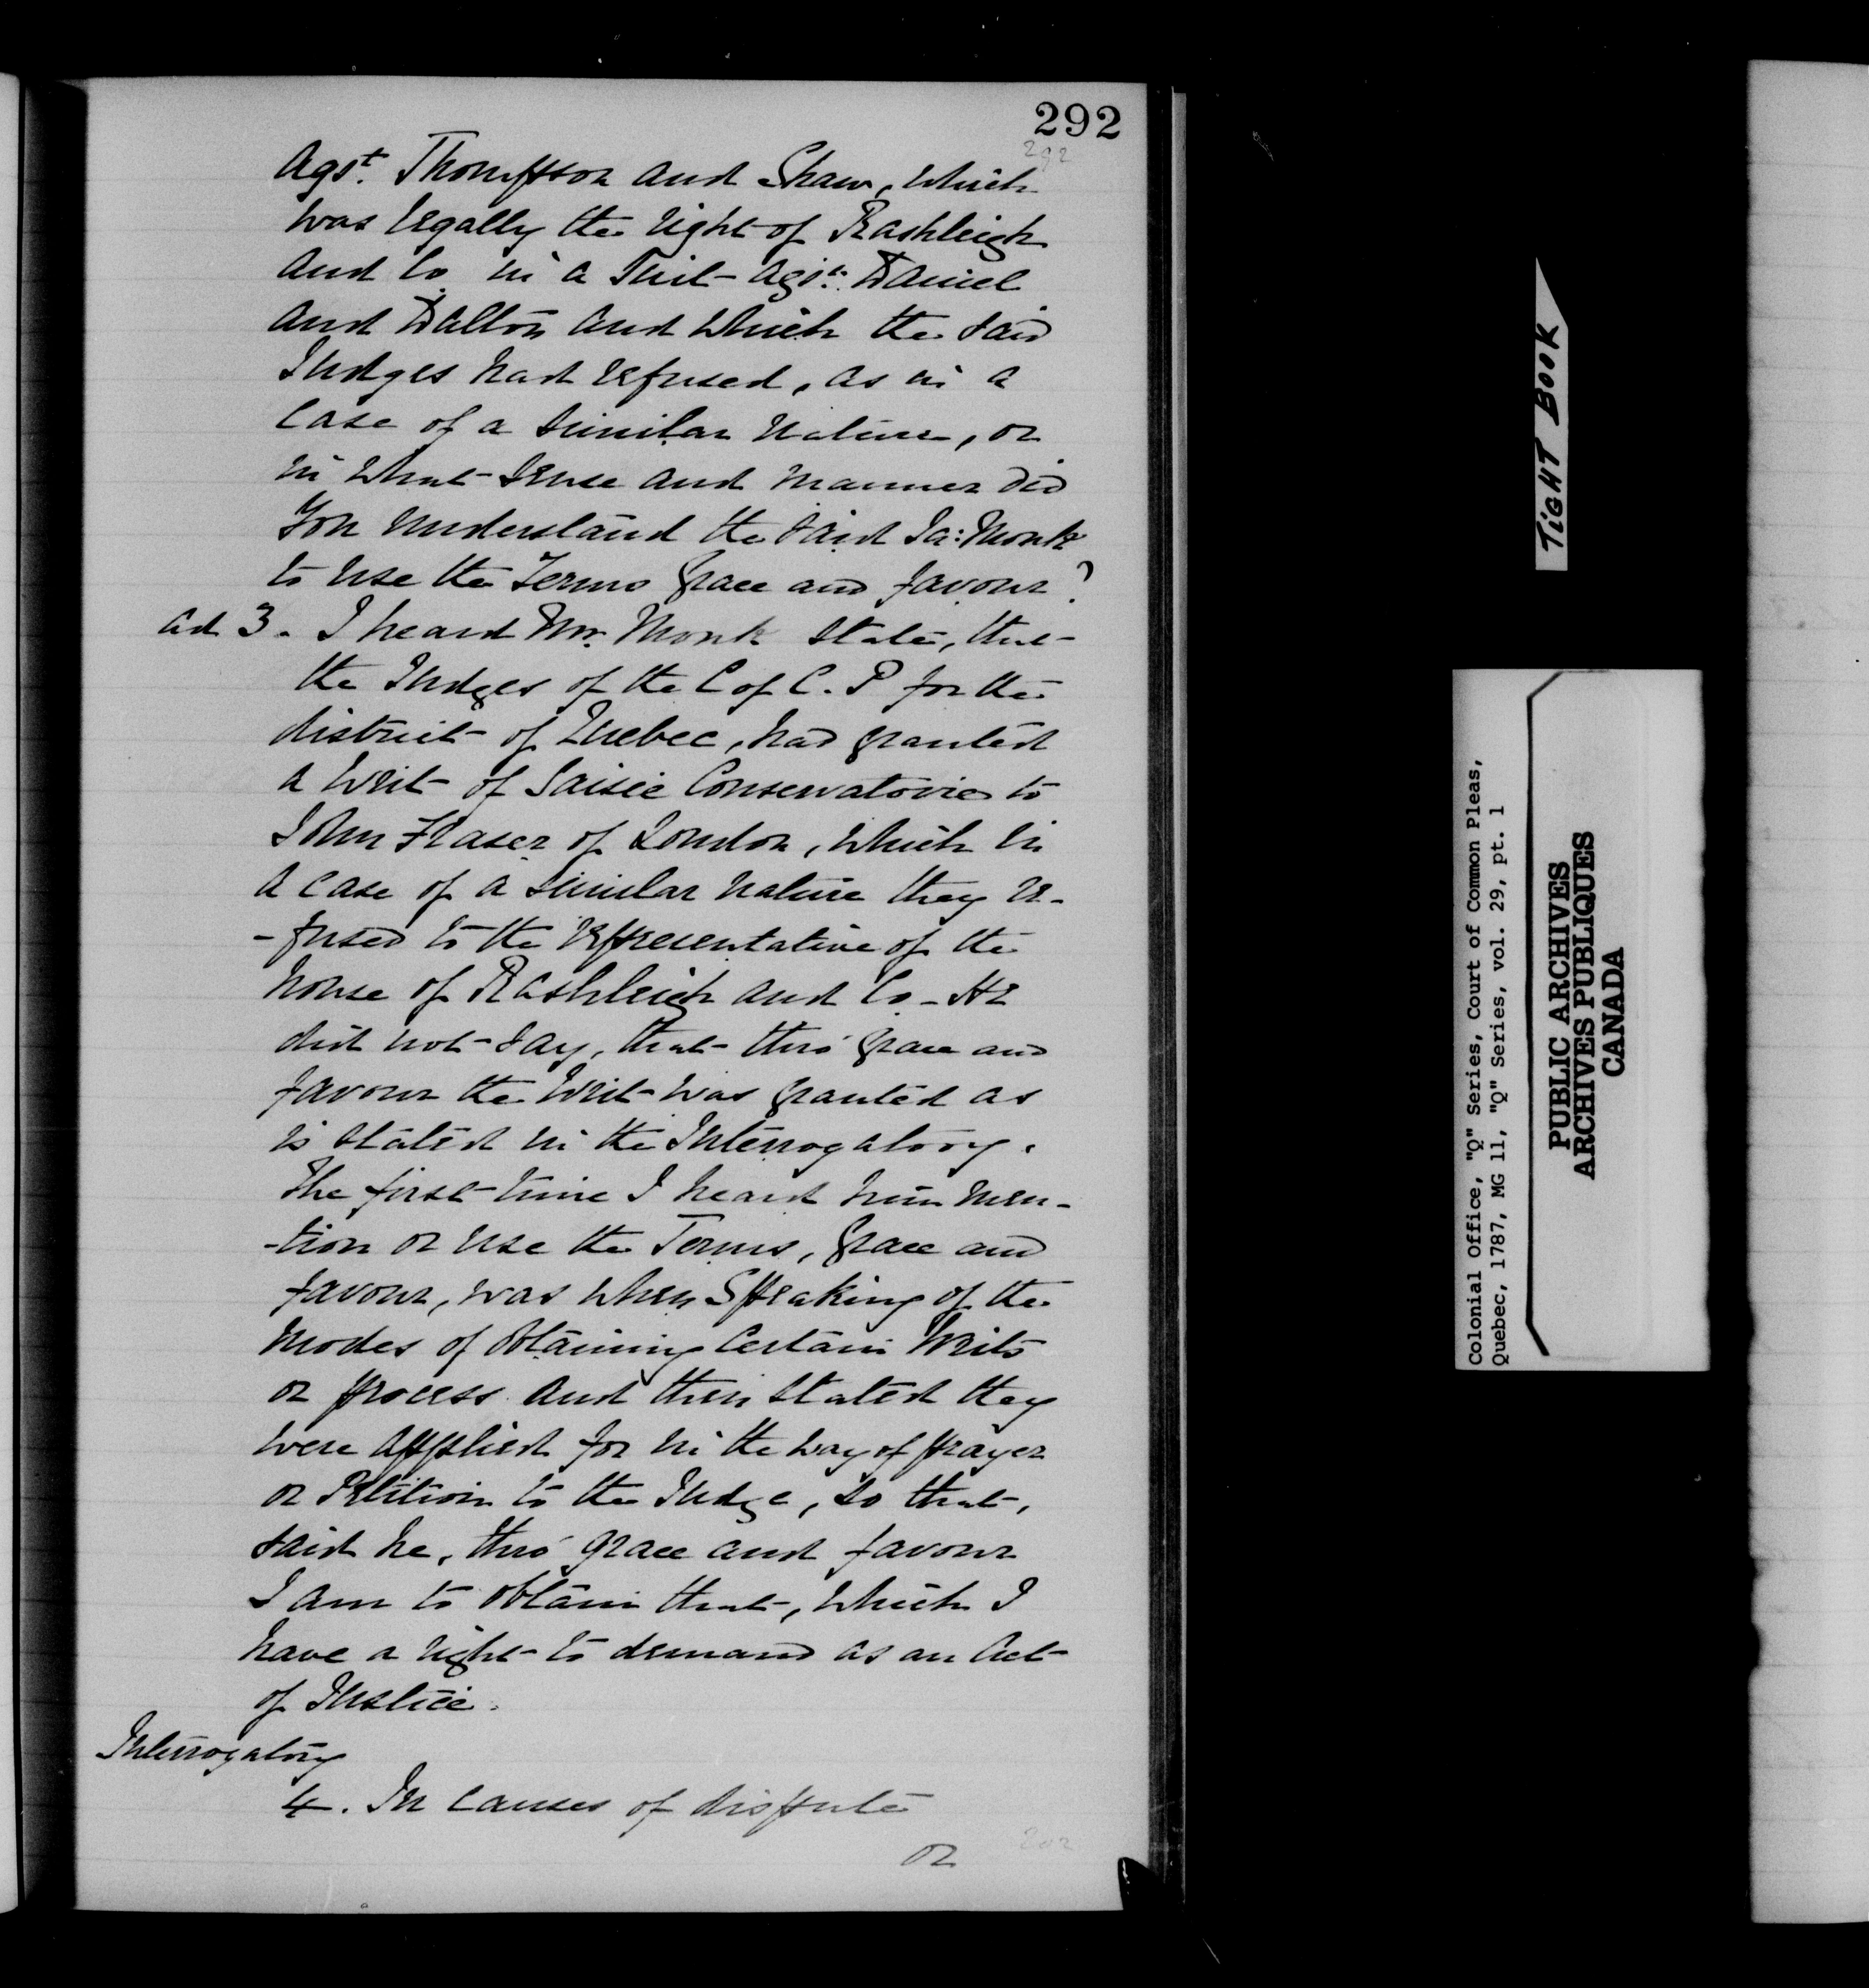 292
292
Agst. Thompson and Shaw, which
was legally the right of Rashleigh
and Co in a Suit agst. Daniel
and Dalton and which the said
Judges had refused, as in a
case of a similar nature, or
in what sense and manner did
You understand the said Ja: Monk
to use the Terms Grace and favour?
ad 3. I heard Mr. Monk state, that
the Judges of the C of C. P for the
district of Quebec, had granted
a Writ of Saisie Conservatoire to
John Fraser of London, which in
a case of a similar nature they re-
-fused to the representative of the
house of Rashleigh and Co - He
did not say, that thro' grace and
favour the Writ was granted as
is stated in the Interrogatory.
The first time I heard him men-
-tion or use the Terms, Grace and
favour, was when Speaking of the
modes of obtaining Certain Writs
or process and then stated they
were applied for in the way of prayer
or Petition to the Judge, so that,
said he, thro' grace and favour
I am to obtain that, which I
have a right to demand as an Act
of Justice.
Interrogatory
4. In causes of dispute
or
202
TIGHT BOOK
Colonial Office, "Q" Series, Court of Common Pleas,
Quebec, 1787, MG 11, "Q" Series, vol. 29, pt. 1
PUBLIC ARCHIVES
ARCHIVES PUBLIQUES
CANADA